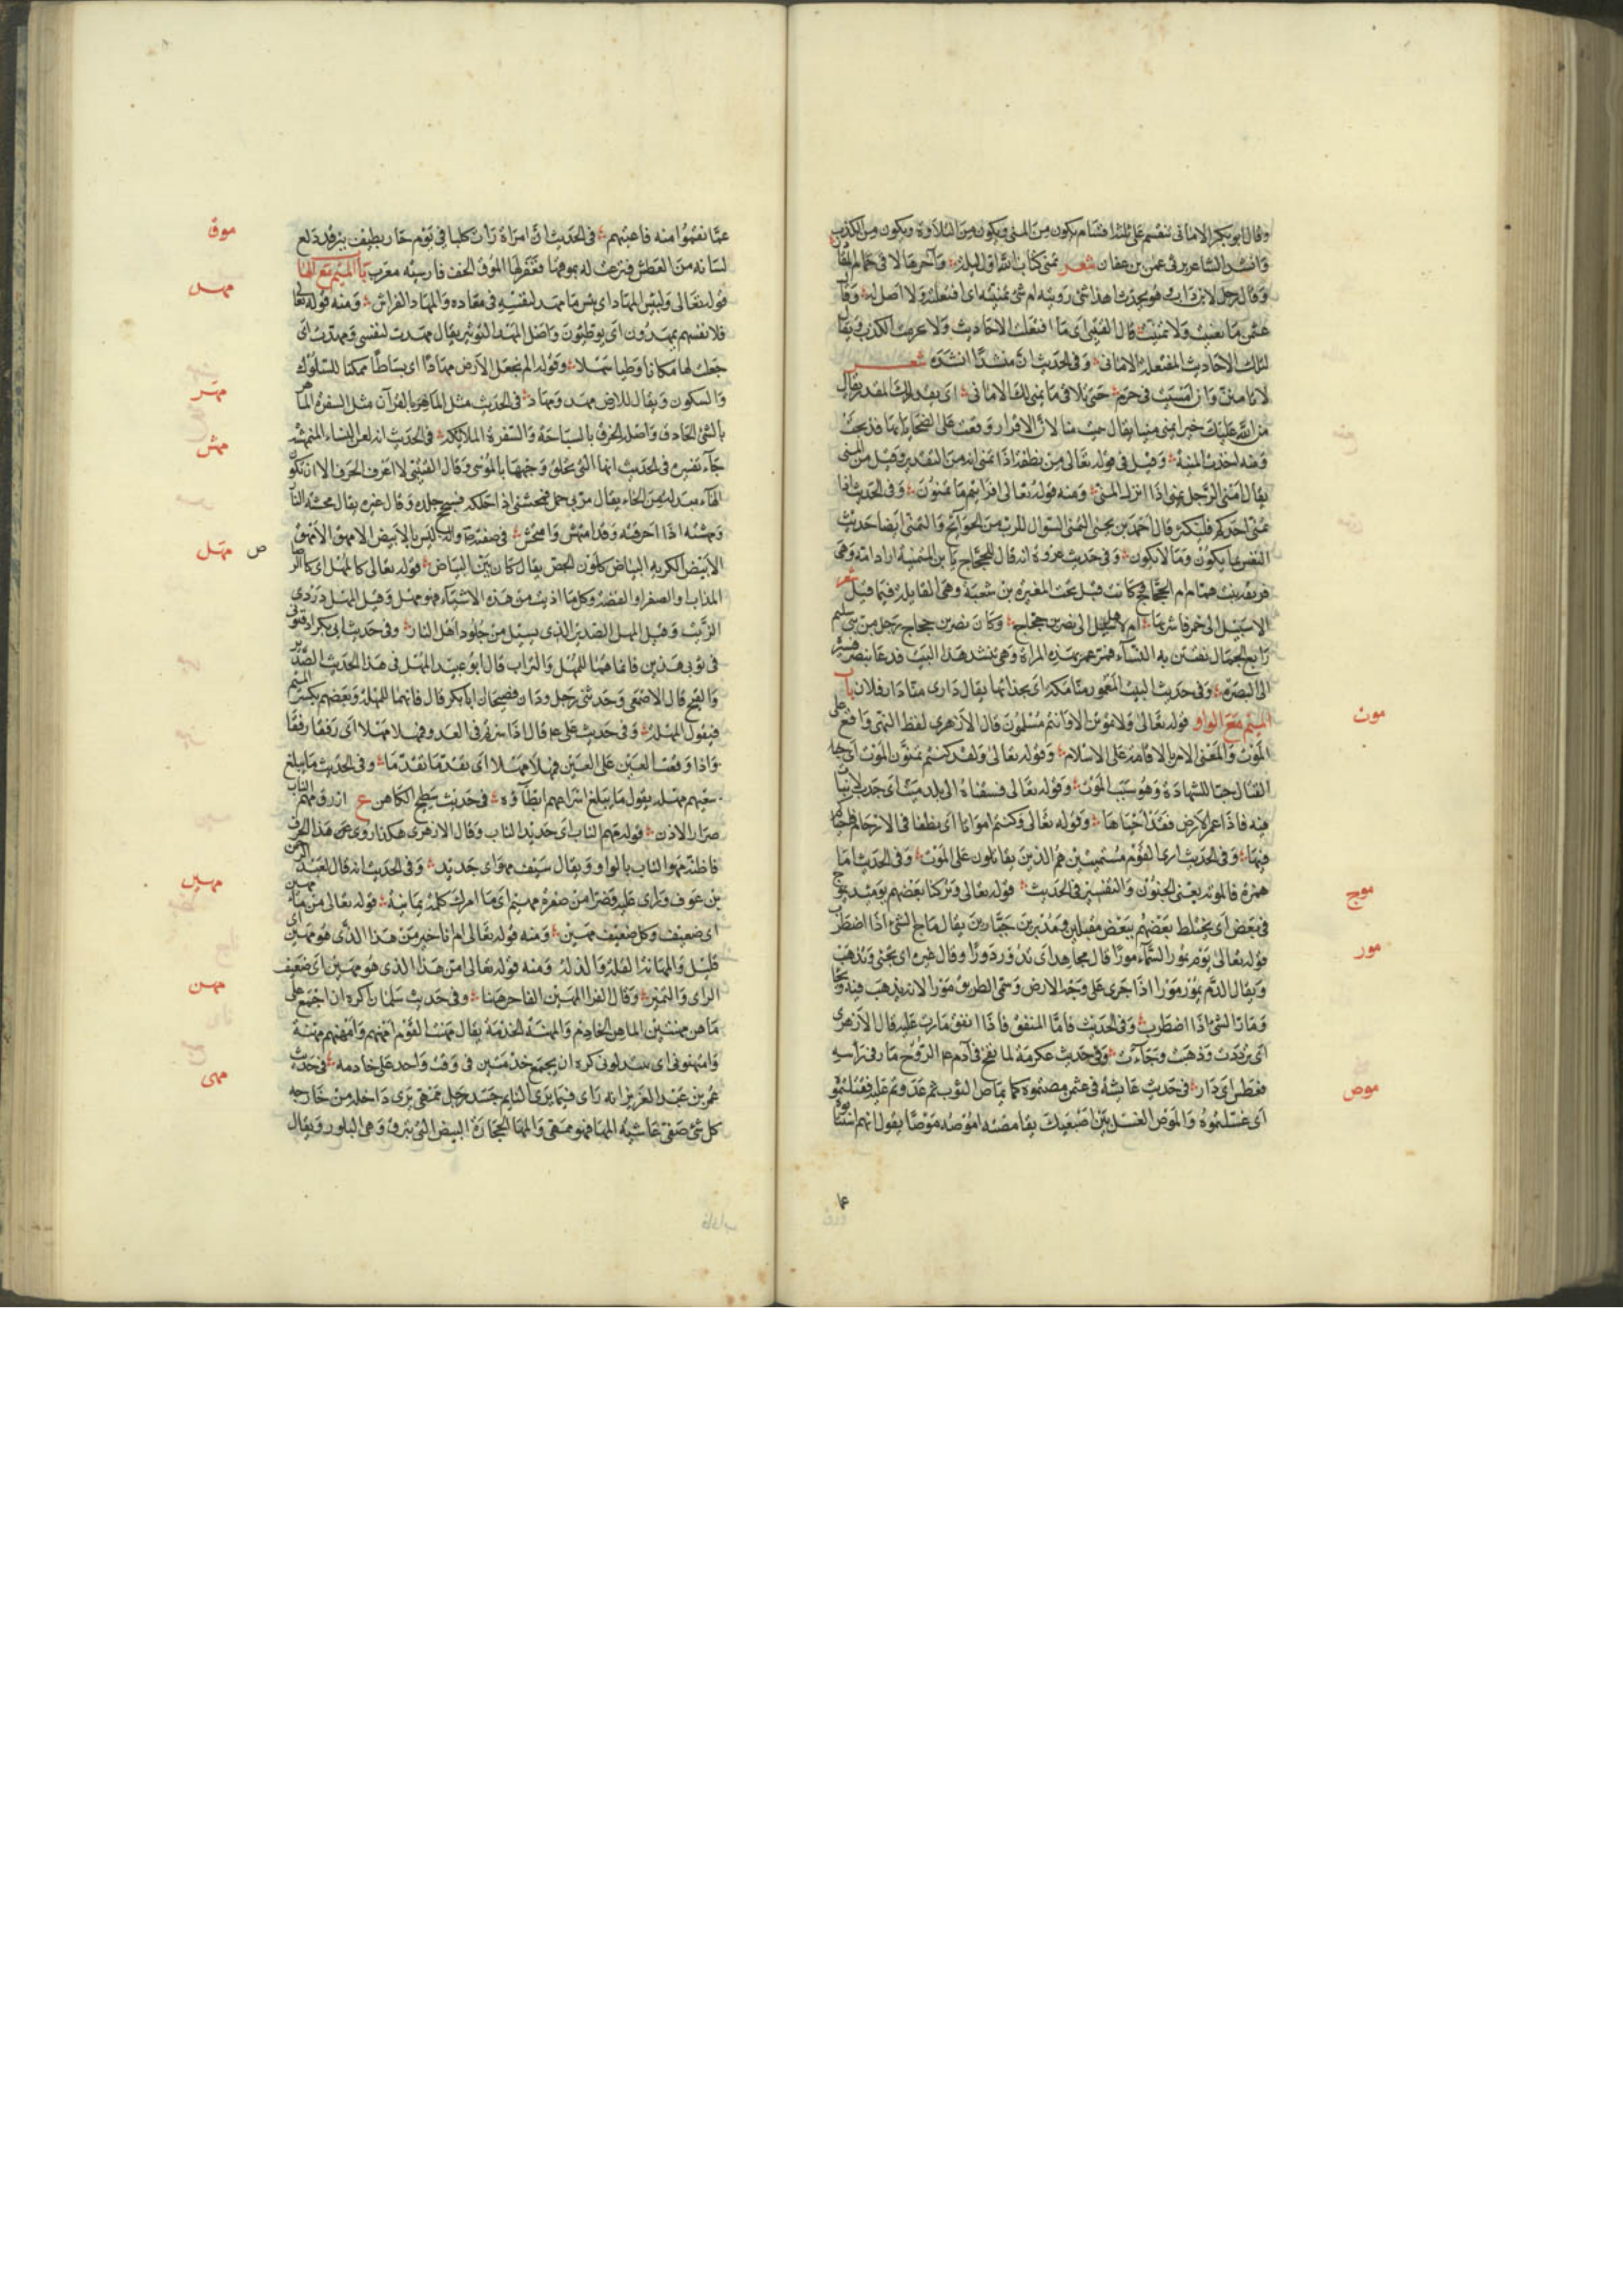 وقال ابو بكر الاماني تنقسم على ثلثة اقسام يكون من المنى ويكون من التلاوة ويكون من الكذب
وانشد الشاعر يرثي عثمن بن عفان شعر تمنى كتاب الله اول ليله وآخرها لاقى حمام المقا
وقال رجل لابن داب هو يحدث اهذا شئ رويته ام شئ تمنيته اى افتعلته ولا اصل له وقال
عثمن ما تغنيت ولا تمنيت قال القتيبي اى ما افتعلت الاحاديث ولا عرفت الكذب ويقال
لتلك الاحاديث المفتعلة الاماني وفي الحديث ان منشدا انشده شعر
لا تامنن وان امسيت في حرم حتى تلاقي ما يمنى لك الاماني اى يقدر لك المقدر يقال
منى الله عليك خيرا يمنى منيا يقال حيث منا لان الاقدار وقعت على الضحايا بها فذبحت
ومنه اخذت المنية وقيل في قوله تعالى من نطفة اذا تمنى انه من التقدير وقيل من المنى
يقال امنى الرجل يمنى اذا انزل المنى ومنه قوله تعالى افرايتم ما تمنون وفي الحديث اذا
تمنى احدكم فليكثر قال احمد بن يحيى التمنى السوال للرب من الحوائج والتمنى ايضا حديث
النفس بما يكون وما لا يكون وفي حديث عروة انه قال للحجاج يا بن المتمنية اراد امه وهى
فريعة بنت همام ام الحجاج كانت قبل تحت المغيرة بن شعبة وهى القايلة فيما قيل شعر
الا سبيل الى خمر فاشربها ام لا سبيل الى نصر بن حجاج وكان نصر بن حجاج رجل من بني سليم
رايع الجمال تفتتن به النساء فمر عمر بهذه المراة وهى تنشد هذا البيت فدعا بنصر فسيره
الى البصرة وفي حديث البيت المعمور منا مكة اى بحذائها يقال دارى منا دار فلان باب
الميم مع الواو قوله تعالى ولا تموتن الا وانتم مسلمون قال الازهري لفظ النهى واقع على
الموت والمعنى الامر بالاقامة على الاسلام وقوله تعالى ولقد كنتم تمنون الموت اى جا
القتال حبا للشهادة وهو سبب الموت وقوله تعالى فسقناه الى بلد ميت اى جدب لا نبات
فيه فاذا عمر الارض فقد احياها وقوله تعالى وكنتم امواتا اى نطفا في الارحام فاحياكم
فيها وفي الحديث ارى القوم مستميتين هم الذين يقاتلون على الموت وفي الحديث اما
همزه فالموتة يعنى الجنون والتفسير في الحديث قوله تعالى وتركنا بعضهم يومئذ يموج
في بعض اى يختلط بعضهم ببعض مقبلين ومدبرين حيارين يقال ماج الشئ اذا اضطرب
قوله تعالى يوم تمور السماء مورا قال مجاهد اى تدور دورا وقال غيره اى تجئ وتذهب
ويقال الدم يمور مورا اذا جرى على وجه الارض وسمى الطريق مورا لانه يذهب فيه ويجا
ومار الشئ اذا اضطرب وفي الحديث فاما المنفق فاذا انفق مارت عليه قال الازهرى
اى ترددت وذهبت وجاءت وفي حديث عكرمة لما نفخ في آدم عم الروح مار في راسه
فعطس اى دار في حديث عايشة في عثمن مصتموه كما يماص الثوب ثم عدوتم عليه فقتلتموه
اى غسلتموه والموص الغسل بين اصبعيك يقا مصته اموصه موصا يقول انهم استتابوه
عما
موت
موج
مور
موص
عما نقموا منه فاعتبهم في الحديث ان امراة رات كلبا في يوم حار يطيف ببئر قد دلع
لسانه من العطش فنزعت له بموقها فغفر لها الموق الخف فارسيته معرب باب الميم مع الها
قوله تعالى ولبئس المهاد اى بئس ما مهد لنفسه في معاده والمهاد الفراش ومنه قوله تعالى
فلانفسهم يمهدون اى يوطئون واصل المهد التوثير يقال مهدت لنفسي ومهدت اى
جعلت لها مكانا وطيا سهلا وقوله الم نجعل الارض مهادا اى بساطا ممكنا للسلوك
والسكون ويقال للارض مهد ومهاد في الحديث مثل الماهر بالقرآن مثل السفرة الماهر
بالشئ الحاذق واصله الحرق بالسباحة والسفرة الملائكة في الحديث انه لعن النساء الممتهشة
جاء تفسيره في الحديث انها التى تحلق وجهها بالموسى وقال القتيبي لا اعرف الحرف الا ان تكون
الهاء مبدلة من الحاء يقال مر بى حمل فمحشنى اذا احاكه فسحج جلدك وقال غيره يقال محشته النار
ومهشته اذا احرقته وقد امتهش وامتحش في صفته صلعم ليس بالابيض الامهق الامهق
الابيض الكريه البياض كلون الجص يقال كان بين البياض قوله تعالى كالمهل اى كالرصاص
المذاب او الصفر او الفضة وكل ما اذيب من هذه الاشياء فهو مهل وقيل المهل دردى
الزيت وقيل المهل الصديد الذى يسيل من جلود اهل النار وفي حديث ابى بكر ادفنونى
في ثوبى هذين فانما هما للمهل والتراب قال ابو عبيد المهل في هذا الحديث الصديد
والقيح قال الاصمعى وحدثنى رجل ودان فصيحان ابا بكر قال فانهما للمهلة وبعضهم يكسر الميم
فيقول المهلة وفي حديث على عم قال اذا سرتم في العدو فمهلا مهلا اى رفقا رفقا
واذا وقعت العين على العين فمهلا مهلا اى تقدما تقدما وفي الحديث ما يبلغ
سعيهم مهله يقول ما يبلغ اسراعهم ابطاؤه في حديث سطيح الكاهن ع ازرق مهم الناب
صرار الاذن قوله مهم الناب اى حديد الناب وقال الازهرى هكذا روى هذا الحرف
فاظنه مهو الناب بالواو ويقال سيف مهو اى حديد وفي الحديث انه قال لعبد الرحمن
بن عوف وراى عليه وضرا من صفرة مهيم اى ما امرك كلمة يمانية قوله تعالى من ماء مهين
اى ضعيف وكل ضعيف مهين ومنه قوله تعالى ام انا خير من هذا الذى هو مهين اى
قليل والمهانة القلة والذلة ومنه قوله تعالى امن هذا الذى هو مهين اى ضعيف
الراى والتميز وقال الفرا المهين الفاجر هاهنا وفي حديث سلمان اكره ان اجمع على
ماهن مهنتين الماهن الخادم والمهنة الخدمة يقال مهنت القوم امهنهم وامهنهم مهنة
وامتهنونى اى ابتذلونى كره ان يجمع خدمتين في وقت واحد على خادمه في حديث
عمر بن عبد العزيز انه راى فيما يرى النايم جسد رجل ممهى يرى داخله من خارجه
كل شئ صفى فاشبه المها فهو ممهى والمها الحجارة البيض التى تبرق وهى البلور ويقال
موق
مهد
مهر
مهش
ص مهل
مهين
مهن
مهى